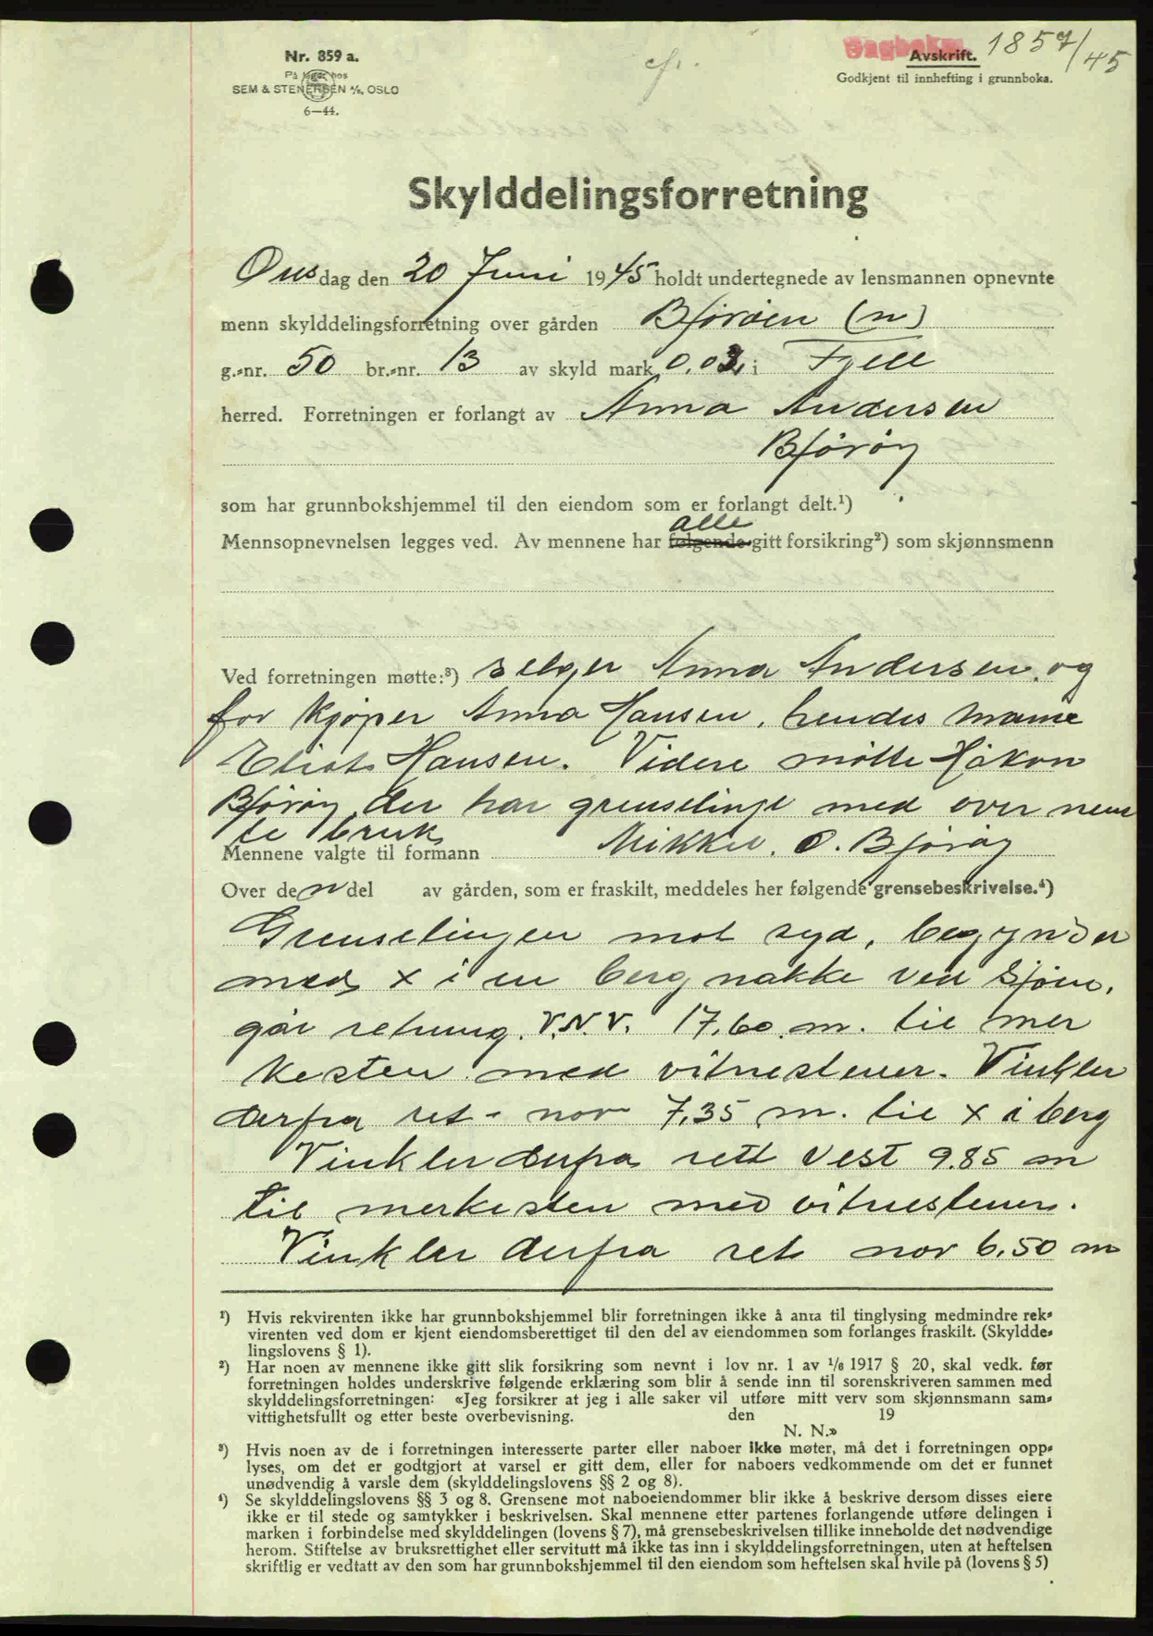 Nr. 859 a.
På lager hos
SEM & STENERSEN A/S, OSLO
6—44.
Dagboknr. 1857/45
Avskrift.
Godkjent til innhefting i grunnboka.
Skylddelingsforretning
Onsdag den 20 Juni 1945 holdt undertegnede av lensmannen opnevnte
menn skylddelingsforretning over gården Bjørøen (n)
g.-nr. 50 br.-nr. 13 av skyld mark 0,03 i Fjell
herred. Forretningen er forlangt av Anna Andersen
Bjørøy
som har grunnbokshjemmel til den eiendom som er forlangt delt.¹)
alle
Mennsopnevnelsen legges ved. Av mennene har følgende gitt forsikring²) som skjønnsmenn
Ved forretningen møtte:³) selger Anna Andersen, og
for kjøper Anna Hansen, hendes mann
Hansen. Videre møtte Håkon
Bjørøy der har grenselinje med over nevn
te bruk
Mennene valgte til formann Mikkel O. Bjørøy
Over den del av gården, som er fraskilt, meddeles her følgende grensebeskrivelse.⁴)
Grenselinjen mot syd, begynder
med x i en berg nakke ved sjøen,
går retning V.N.V. 17,60 m. til mer
kesten med vitnestener. Vinkler
derfra ret - nor 7,35 m. til x i berg
Vinkler derfra rett vest 9.85 m
til merkesten med vitnestener.
Vinkler derfra ret nor 6,50 m
¹) Hvis rekvirenten ikke har grunnbokshjemmel blir forretningen ikke å anta til tinglysing medmindre rek-
virenten ved dom er kjent eiendomsberettiget til den del av eiendommen som forlanges fraskilt. (Skyldde-
lingslovens § 1).
²) Har noen av mennene ikke gitt slik forsikring som nevnt i lov nr. 1 av 1/6 1917 § 20, skal vedk. før
forretningen holdes underskrive følgende erklæring som blir å sende inn til sorenskriveren sammen med
skylddelingsforretningen: «Jeg forsikrer at jeg i alle saker vil utføre mitt verv som skjønnsmann sam-
vittighetsfullt og etter beste overbevisning. den 19
N. N.»
³) Hvis noen av de i forretningen interesserte parter eller naboer ikke møter, må det i forretningen opp-
lyses, om det er godtgjort at varsel er gitt dem, eller for naboers vedkommende om det er funnet
unødvendig å varsle dem (skylddelingslovens §§ 2 og 8).
⁴) Se skylddelingslovens §§ 3 og 8. Grensene mot naboeiendommer blir ikke å beskrive dersom disses eiere
ikke er til stede og samtykker i beskrivelsen. Skal mennene etter partenes forlangende utføre delingen i
marken i forbindelse med skylddelingen (lovens § 7), må grensebeskrivelsen tillike inneholde det nødvendige
herom. Stiftelse av bruksrettighet eller servitutt må ikke tas inn i skylddelingsforretningen, uten at heftelsen
skriftlig er vedtatt av den som har grunnbokshjemmel til den eiendom som heftelsen skal hvile på (lovens § 5)